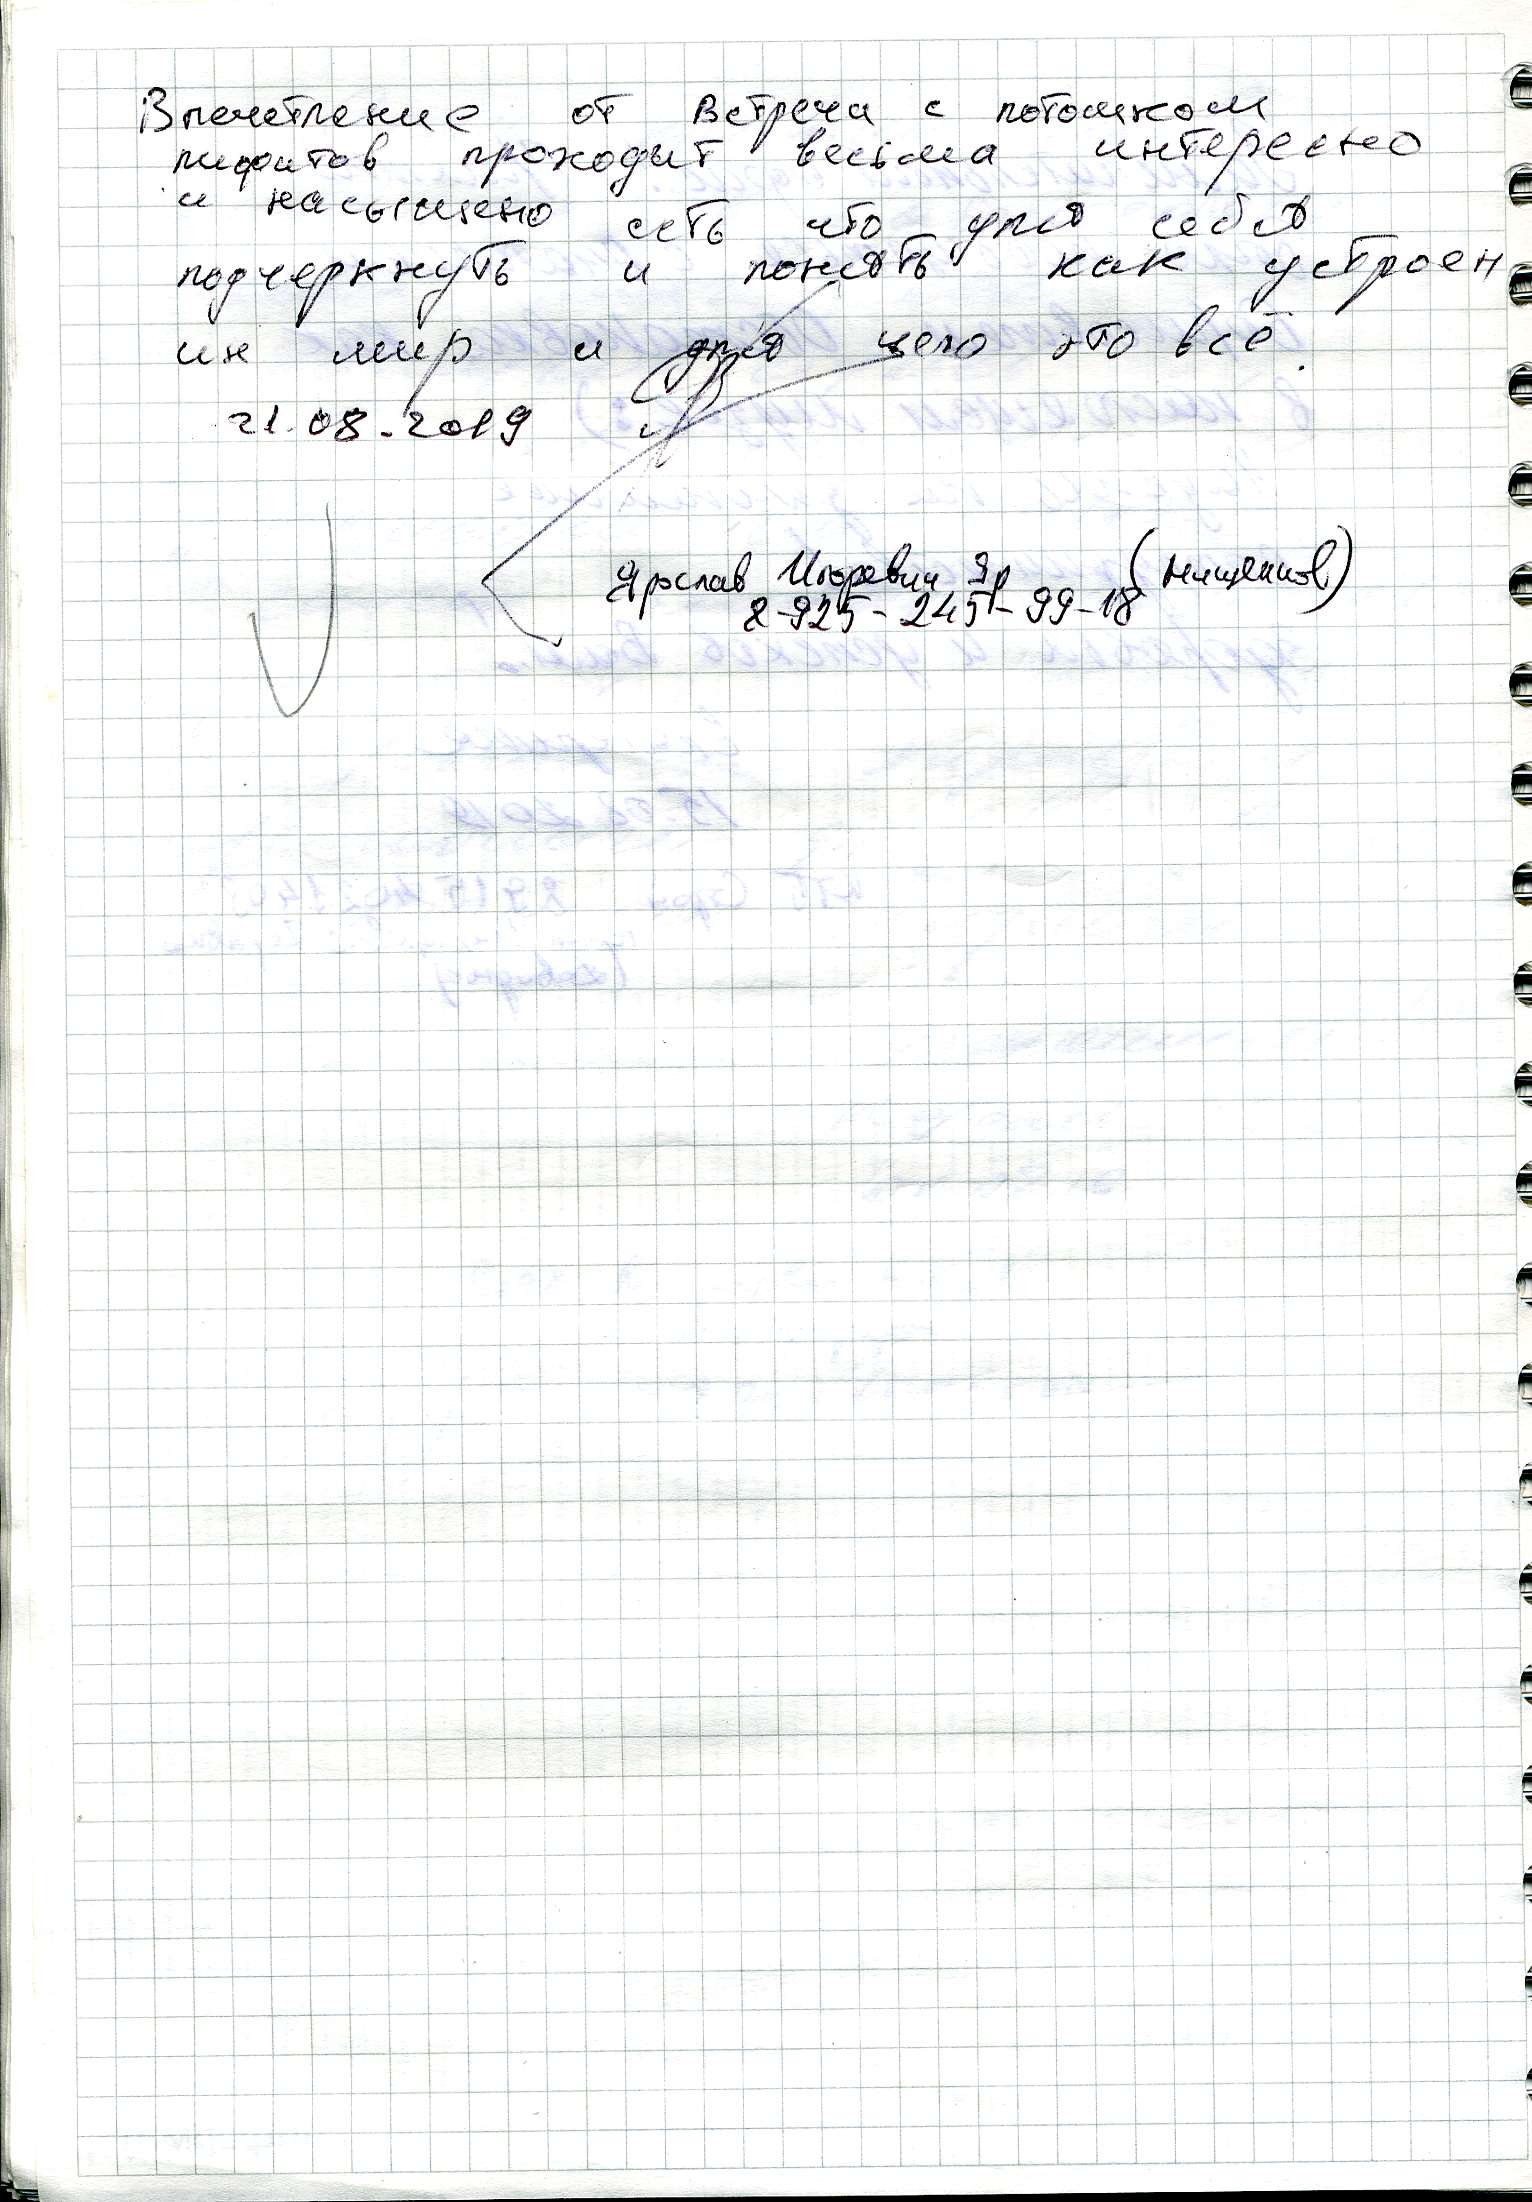 Впечетление от встречи с потомком
пифитов проходит весьма интересно
и насышено есть что для себя
подчеркнуть и понять как устроен
их мир и для чего это всё.
21.08.2019
Ярослав Игоревич Яр
8-925-245-99-18